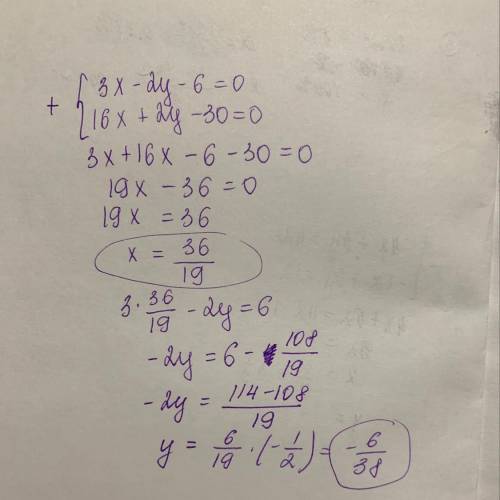 + { 3x - 2y - 6 = 0
16x + 2y - 30 = 0
3x + 16x - 6 - 30 = 0
19x - 36 = 0
19x = 36
x = 36/19
3 · 36/19 - 2y = 6
-2y = 6 - 108/19
-2y = (114 - 108)/19
y = 6/19 · (-1/2) = -6/38